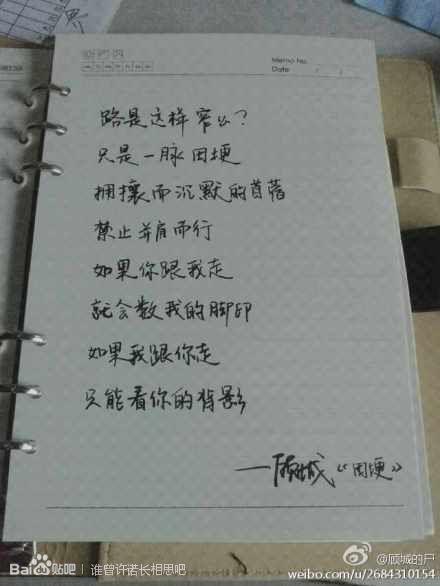 Memo No.
Date
路是这样窄么？
只是一脉田埂
拥攘而沉默的苜蓿
禁止并肩而行
如果你跟我走
就会数我的脚印
如果我跟你走
只能看你的背影
——顾城《田埂》
Bai贴吧 | 谁曾许诺长相思吧
@顾城的尸
weibo.com/u/2684310154